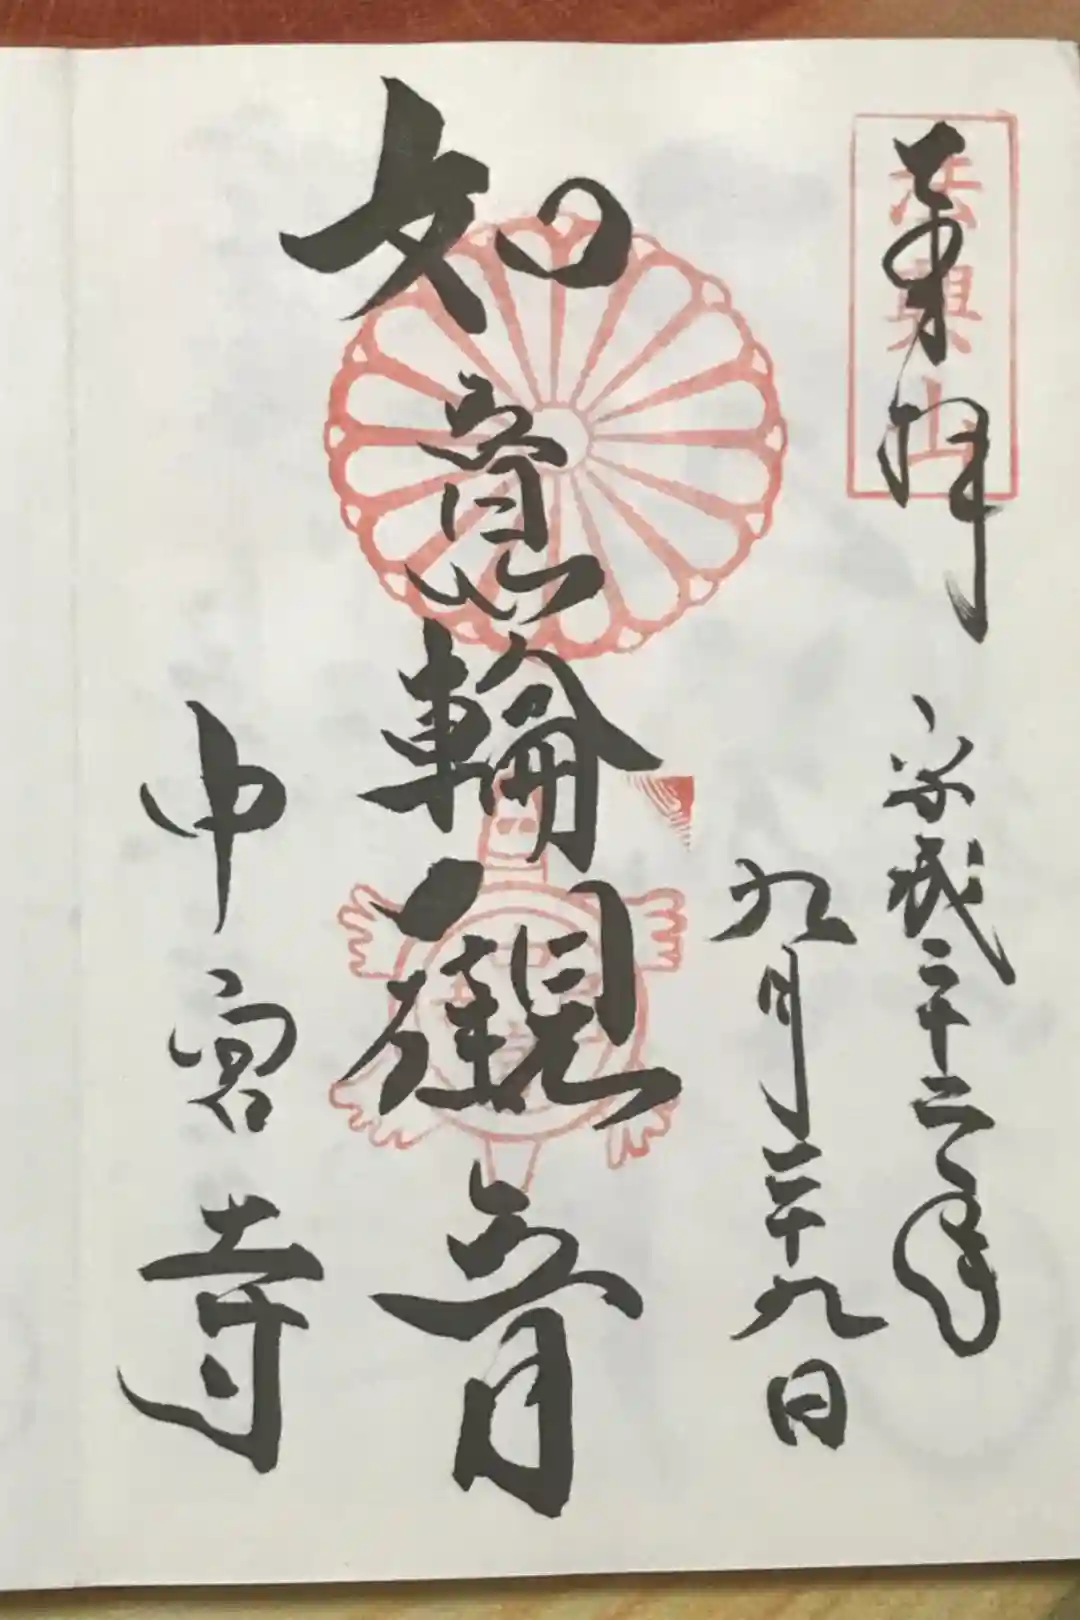 奉拝
法興山
平成二十二年
九月二十九日
如意輪観音
中宮寺